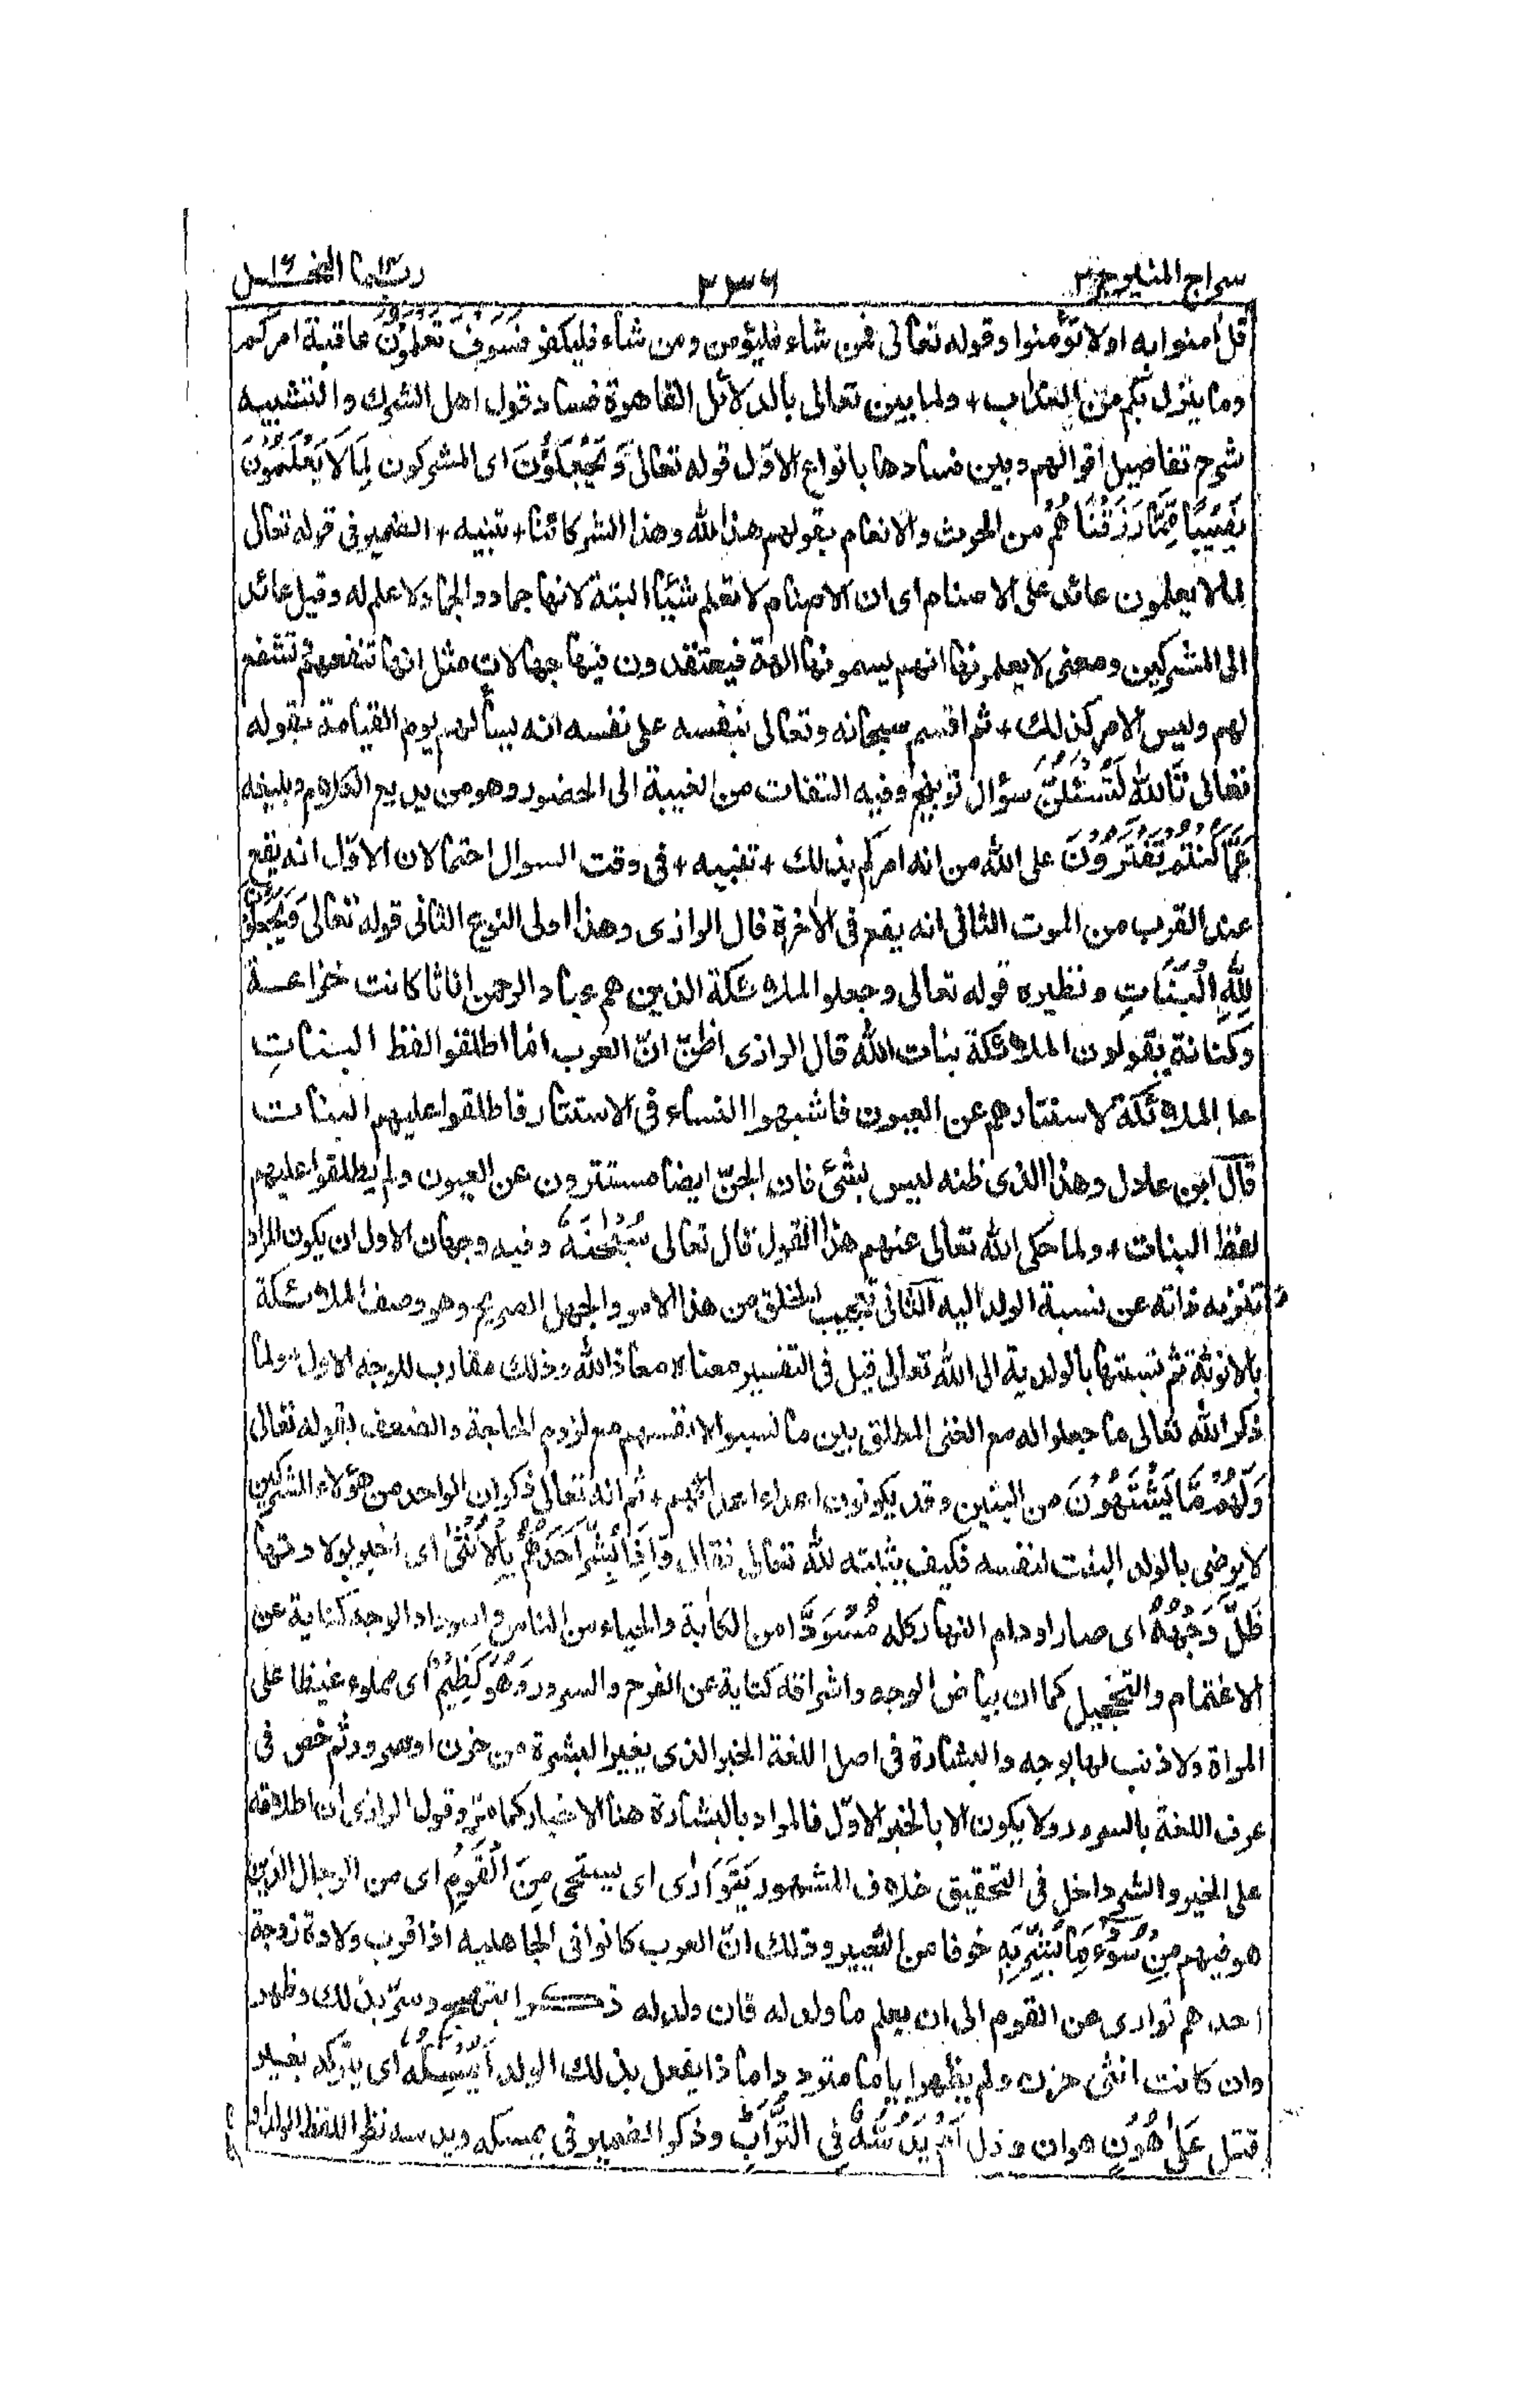 سراج المنير ج ٢ ٢٣٦ ربما ١٤ النحل ١٦
قل أمنوا به اولا تؤمنوا وقوله تعالى فمن شاء فليؤمن ومن شاء فليكفر فَسَوْفَ تَعْلَمُوْنَ عاقبة امركم
وما ينزل بكم من العذاب + ولما بين تعالى بالدلائل القاهرة فساد قول اهل الشرك والتشبيه
شرح تفاصيل اقوالهم وبين فسادها بانواع الاوّل قوله تعالى وَيَجْعَلُوْنَ اى المشركون لِمَا لَا يَعْلَمُوْنَ
نَصِيْبًا مِّمَّا رَزَقْنَاهُمْ من الحرث والانعام بقولهم هذا لله وهذا لشركائنا + تنبيه + الضمير فى قوله تعالى
لما لا يعلمون عائد على الاصنام اى ان الاصنام لا تعلم شيئا البتة لانها جماد والجماد لا علم له وقيل عائد
الى المشركين ومعنى لا يعلمونها انهم يسمونها الهة فيعتقدون فيها جهالات مثل انها تنفعهم وتشفع
لهم وليس الامر كذلك + ثم اقسم سبحانه وتعالى بنفسه على نفسه انه يسألهم يوم القيامة بقوله
تعالى تَاللّٰهِ لَتُسْئَلُنَّ سؤال توبيخ وفيه التفات من الغيبة الى الحضور وهو من بديع الكلام وبليغه
عَمَّا كُنْتُمْ تَفْتَرُوْنَ على الله من انه امركم بذلك + تنبيه + فى وقت السوال احتمالان الاوّل انه يقع
عند القرب من الموت الثانى انه يقع فى الآخرة قال الرازى وهذا اولى النوع الثانى قوله تعالى وَيَجْعَلُوْنَ
لِلّٰهِ الْبَنَاتِ ونظيره قوله تعالى وجعلوا الملائكة الذين هم عباد الرحمن اناثا كانت خزاعة
وكنانة يقولون الملائكة بنات الله قال الرازى اظنّ انّ العرب انما اطلقوا لفظ البناتِ
على الملائكة لاستتارهم عن العيون فاشبهوا النساء فى الاستتار فاطلقوا عليهم البنات
قال ابن عادل وهذا الذى ظنه ليس بشئ فان الجنّ ايضا مستترون عن العيون ولم يطلقوا عليهم
لفظ البنات + ولما حكى الله تعالى عنهم هذا القول قال تعالى سُبْحٰنَهٗ وفيه وجهان الاول ان يكون المراد
تنزيه ذاته عن نسبة الولد اليه الثانى تعجيب الخلق من هذا الامر والجهل الصريح وهو وصف الملائكة
بالانوثة ثم نسبتها بالولدية الى الله تعالى قيل فى التفسير معناه معاذ الله وذلك مقارب للوجه الاول + ولما
ذكر الله تعالى ما جعلوا له مع الغنى المطلق بين ما نسبوا لانفسهم مع لزوم الحاجة والضعف بقوله تعالى
وَلَهُمْ مَّا يَشْتَهُوْنَ من البنين وقد يكونون اعداء اعدائهم + ثم انه تعالى ذكر ان الواحد من هؤلاء المشركين
لا يرضى بالولد البنت لنفسه فكيف يثبته لله تعالى فقال وَاِذَا بُشِّرَ اَحَدُهُمْ بِالْاُنْثٰى اى اخبر بولادتها
ظَلَّ وَجْهُهٗ اى صار او دام النهار كله مُسْوَدًّا من الكأبة والحياء من الناس واسوداد الوجه كناية عن
الاغتمام والتخجيل كما ان بياض الوجه واشراقه كناية عن الفرح والسرور وَهُوَ كَظِيْمٌ اى مملوء غيظا على
المراة ولا ذنب لها بوجه والبشارة فى اصل اللغة الخبر الذى يغير البشرة من حزن او سرور ثم خص فى
عرف اللغة بالسرور ولا يكون الا بالخبر الاوّل فالمراد بالبشارة هنا الاخبار كما مرّ وقول الرازى ان اطلاقه
على الخير والشر داخل فى التحقيق خلاف المشهور يَتَوَارٰى اى يستحى مِنَ الْقَوْمِ اى من الرجال الذين
هو فيهم مِنْ سُوْٓءِ مَا بُشِّرَ بِهٖ خوفا من التعيير وذلك انّ العرب كانوا فى الجاهلية اذا قرب ولادة زوجة
احدهم توارى من القوم الى ان يعلم ما ولد له فان ولد له ذكرا ابتهج وسرّ بذلك وظهر
وان كانت انثى حزن ولم يظهر اياما متردداماذا يفعل بذلك الولد اَيُمْسِكُهٗ اى يتركه بغير
قتل عَلٰى هُوْنٍ هوان وذل اَمْ يَدُسُّهٗ فِى التُّرَابِ وذكر الضمير فى يمسكه ويدسه نظرا للفظ الولد او